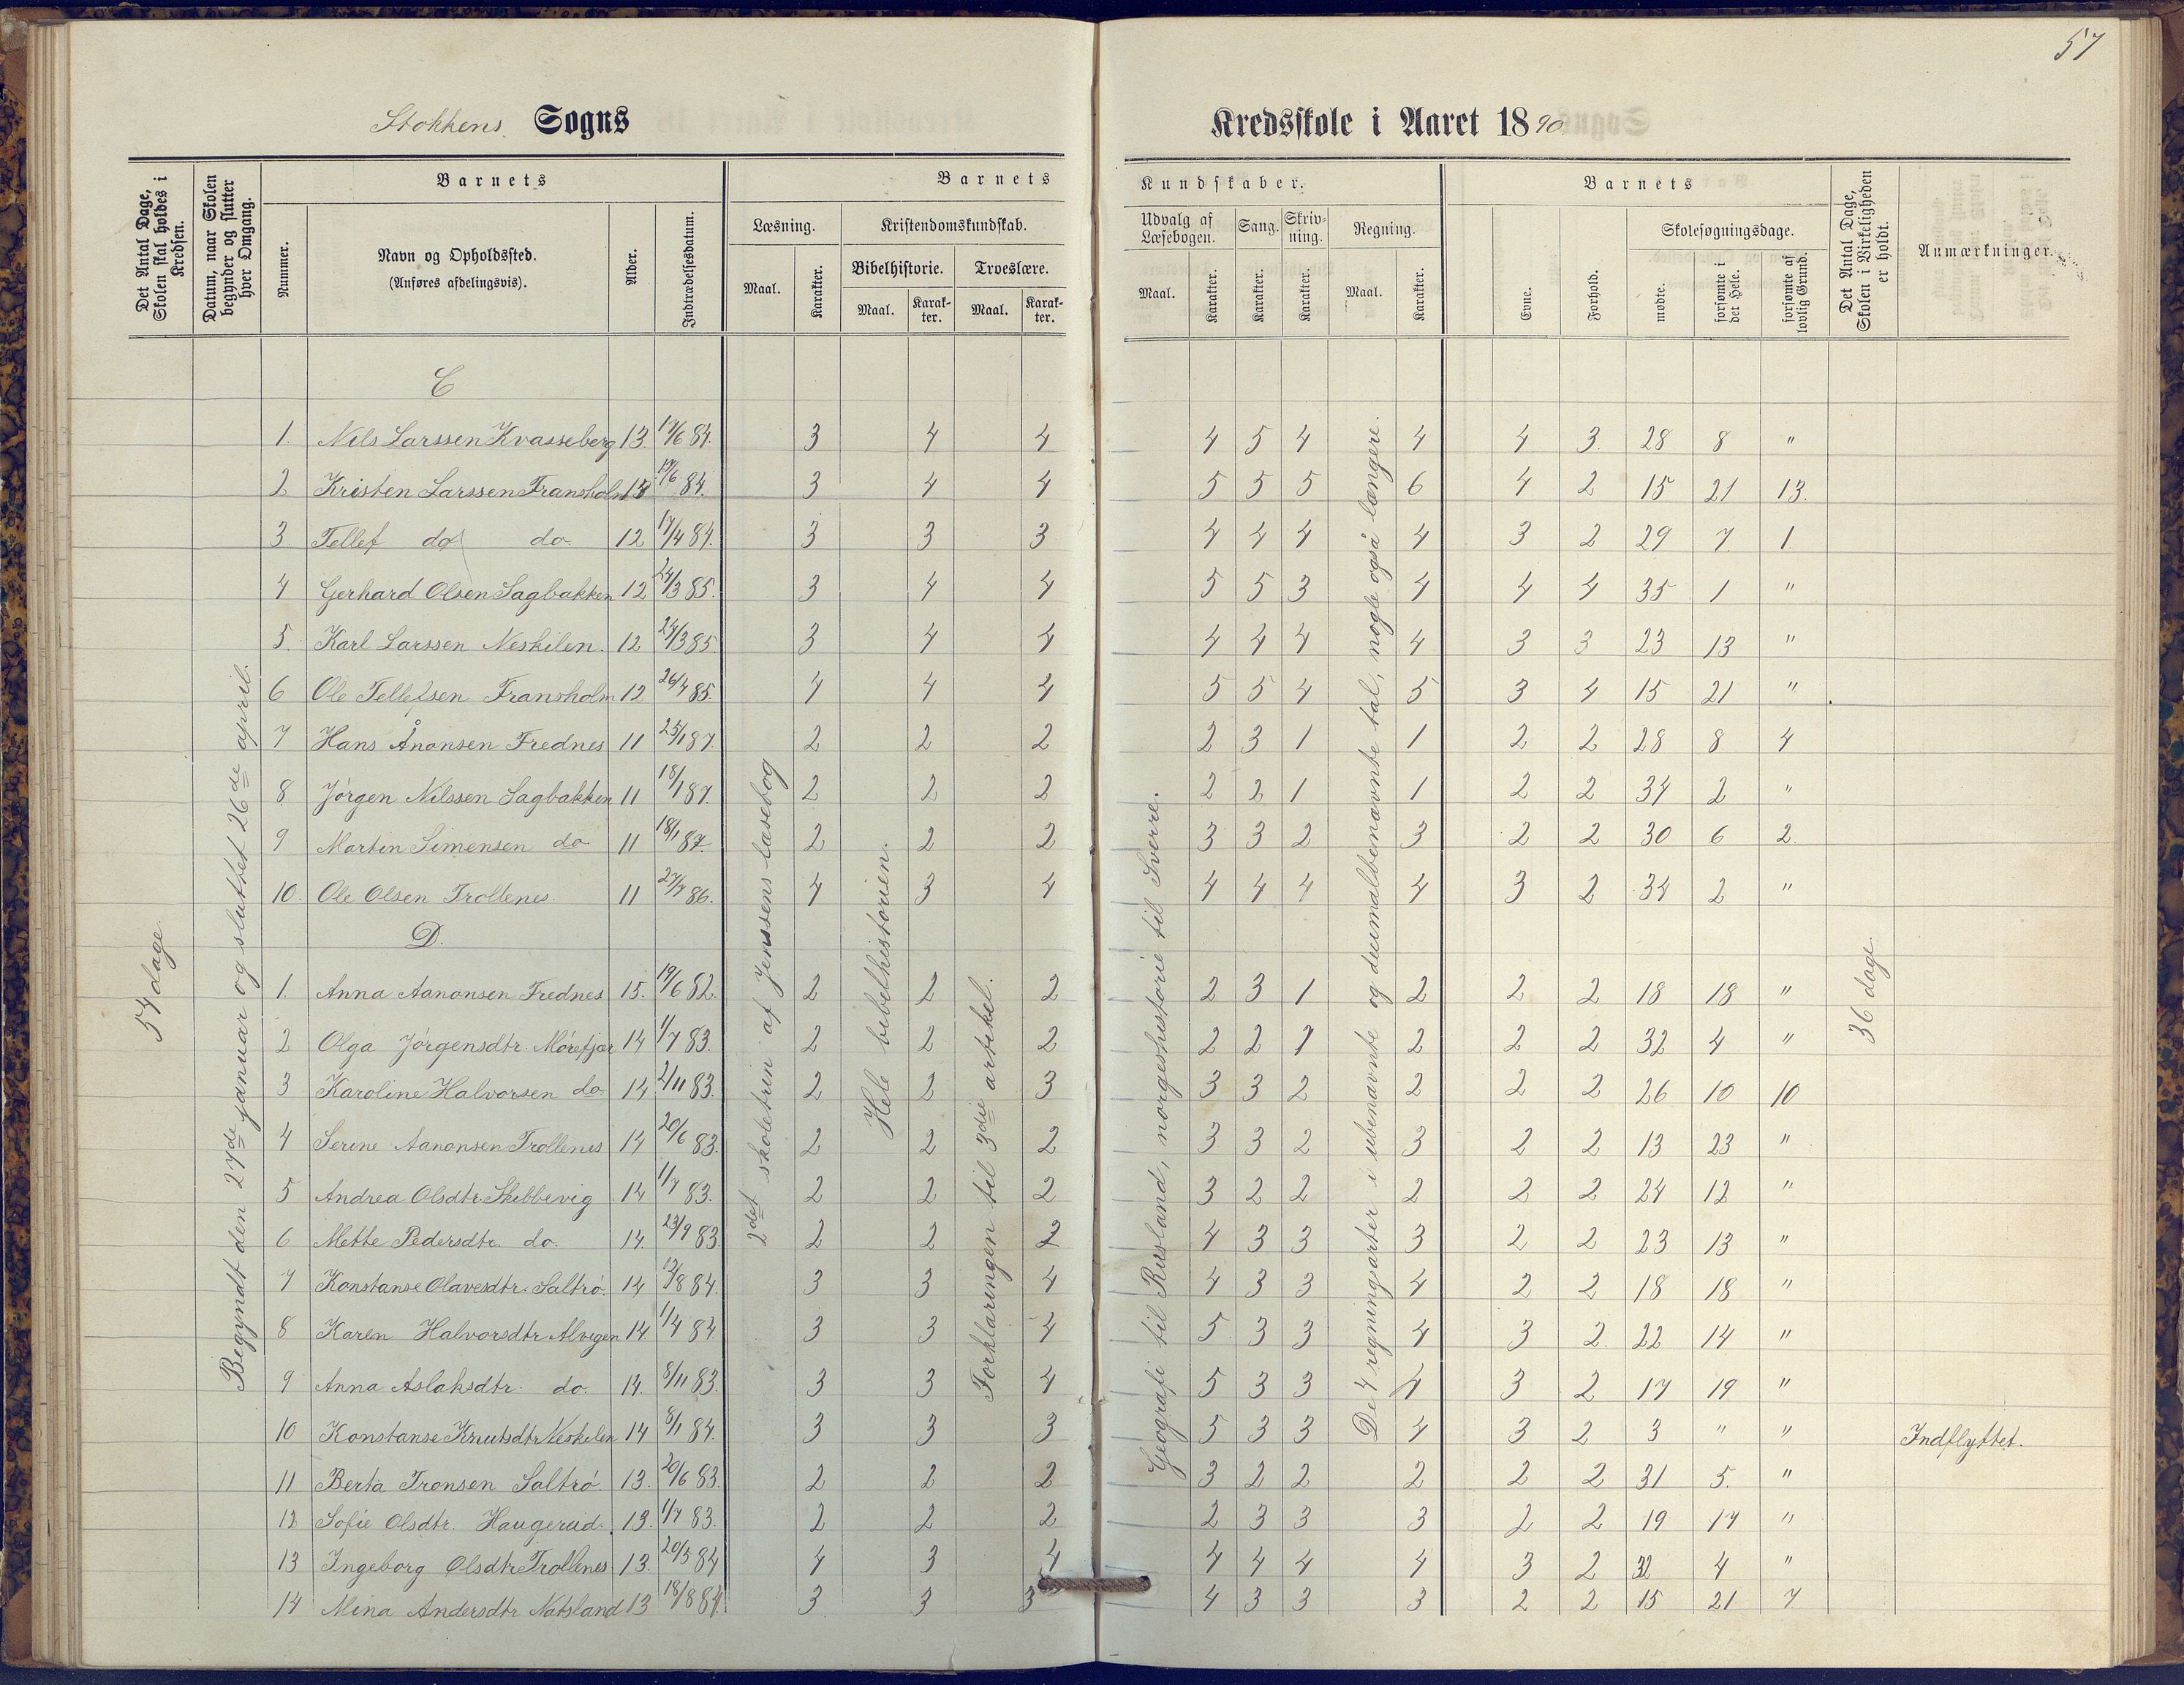 57
Stokkens Sogns Kredsskole i Aaret 1890
Det Antal Dage, Skolen skal holdes i Kredsen.
Datum, naar Skolen begynder og slutter hver Omgang.
Barnets
Nummer.
Navn og Opholdssted. (Anføres afdelingsvis).
Alder.
Indtrædelsesdatum.
Barnets Kundskaber.
Læsning.
Maal. Karakter.
Kristendomskundskab.
Bibelhistorie. Troeslære.
Maal. Karakter. Maal. Karakter.
Udvalg af Læsebogen. Sang. Skrivning. Regning.
Maal. Karakter. Karakter. Karakter. Maal. Karakter.
Barnets
Evne. Forhold.
Skolesøgningsdage.
mødte. forsømte i det Hele. forsømte af lovlig Grund.
Det Antal Dage, Skolen i Virkeligheden er holdt.
Anmærkninger.
54 dage
Begyndt den 27de januar og sluttet 26de april.
2det skoletrin af Jenssens læsebog
Hele bibelhistorien.
Forklaringen til 3die artikel.
Geografi til Rusland, norgeshistorie til Sverre.
De 4 regningsarter i ubenævnte og deeimalbenævnte tal, nogle også længere.
36 dage.
C
1. Nils Larssen Kvasseberg 13. 17/6 84. 3 4 4 4 5 4 4 4 3. 28 8 "
2 Kristen Larssen Fransholm 13 17/6 84. 3 4 4 5 5 5 6 4 2 15 21 13.
3 Tellef do do 12 17/4 84. 3 3 3 4 4 4 4 3 2 29 7 1
4 Gerhard Olsen Sagbakken 12 24/3 85. 3 4 4 5 5 3 4 4 4 35 1 "
5. Karl Larssen Neskilen. 12 24/3 85. 3 4 4 4 4 4 4 3 3 23 13 "
6 Ole Tellefsen Fransholm 12 26/4 85. 4 4 4 5 5 4 5 3 4 15 21 "
7 Hans Ånonsen Frednes 11 25/1 87. 2 2 2 2 3 1 1 2 2 28 8 4
8 Jörgen Nilssen Sagbakken 11 18/1 87. 2 2 2 2 2 1 1 2 2 34 2 "
9 Martin Simensen do 11 18/1 87. 2 2 2 3 3 2 3 2 2 30 6 2.
10. Ole Olsen Trollenes. 11 27/7 86. 4 3 4 4 4 4 4 3 2 34 2 "
D.
1. Anna Aanonsen Frednes 15. 19/6 82. 2 2 2 2 3 1 2 2 2 18 18 "
2 Olga Jörgensdtr. Mörefjær 14 1/7 83. 2 2 2 2 2 1 2 2 2 32 4 "
3 Karoline Halvorsen do 14. 2/11 83. 2 2 3 3 3 2 2 2 2 26 10 10
4 Serine Aanonsen Trollenes 14 20/6 83. 2 2 2 3 3 2 3 2 2 13 23 "
5 Andrea Olsdtr. Skibbevig 14 1/7 83. 2 2 2 3 2 2 2 2 2 24 12 "
6 Mette Pedersdtr. do. 14. 23/9 83. 2 2 2 4 3 3 3 2 2 23 13 "
7 Konstanse Olavesdtr. Saltrö. 14 12/8 84. 3 3 4 4 3 3 4 2 2 18 18 "
8 Karen Halvorsdtr Alvegen 14. 1/4 84 3 3 4 5 3 3 4 3 2. 22 14 "
9 Anna Aslaksdtr. do. 14. 8/11 83. 3 3 4 5 3 3 4 3 2 17 19 "
10 Konstanse Knutsdtr Neskilen 14 8/1 84. 3 3 3 5 3 3 4 3 2 3 " " Indflyttet.
11 Berta Tronsen Saltrö 13. 20/6 83. 2 2 2 3 2 2 2 2 2 31 5. "
12 Sofie Olsdtr. Haugerud. 13. 1/7 83. 2 2 2 2 3 3 3 2 2 19 17 "
13 Ingeborg Olsdtr Trollenes 13. 20/5 84 4 3 4 4 4 4 4 3 2 32 4 "
14 Mina Andersdtr Natsland 13 18/8 84. 3 3 3 4 3 3 3 2 2 15 21 7